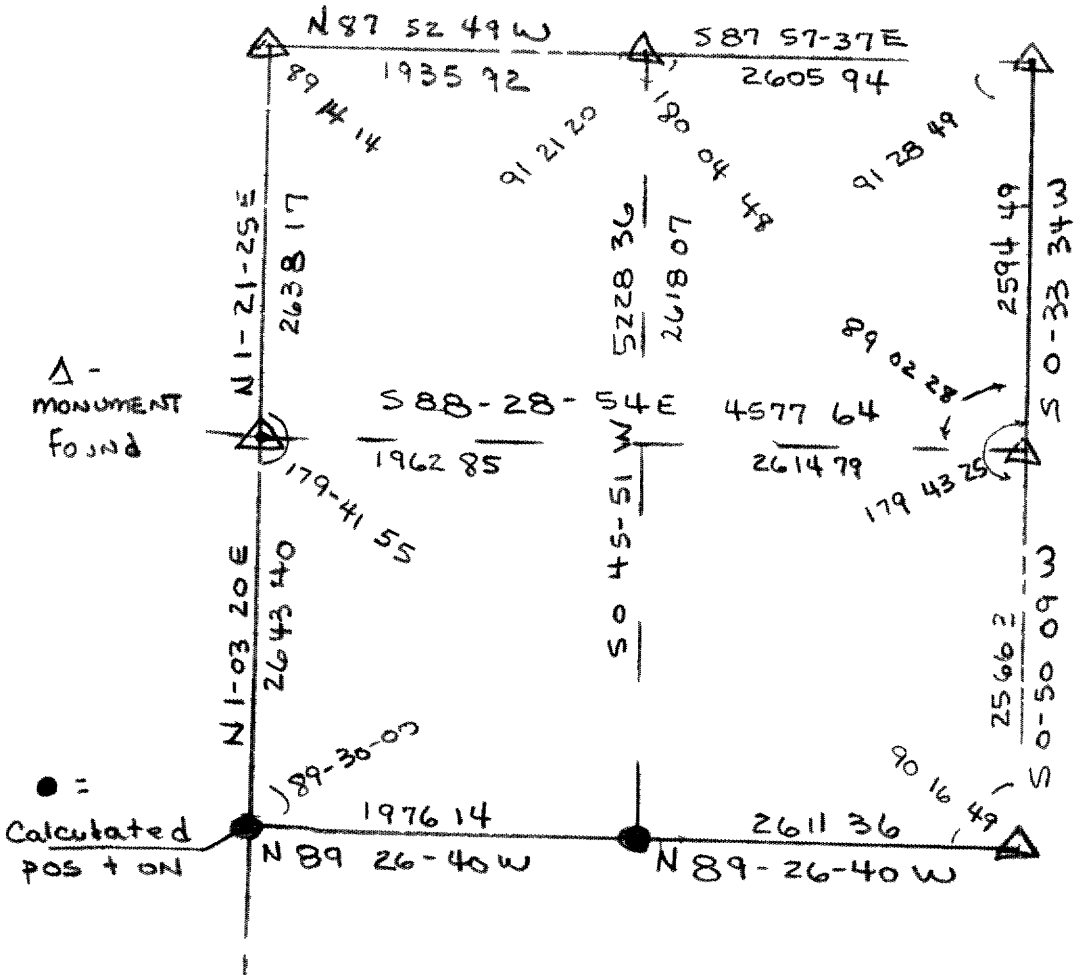 N 87 52 49 W
1935 92
S 87 57-37 E
2605 94
89 14 14
91 21 20
180 04 48
91 28 49
N 1-21-25 E
2638 17
5228 36
2618 07
2594 49
S 0-33 34 W
Δ -
MONUMENT
FOUND
S 88-28-54 E 4577 64
1962 85
2614 79
89 02 28
179-41 55
179 43 25
S 0 45-51 W
N 1-03 20 E
2643 40
2566 2
S 0-50 09 W
89-30-03
90 16 49
● =
Calculated
POS + ON
1976 14
N 89 26-40 W
2611 36
N 89-26-40 W